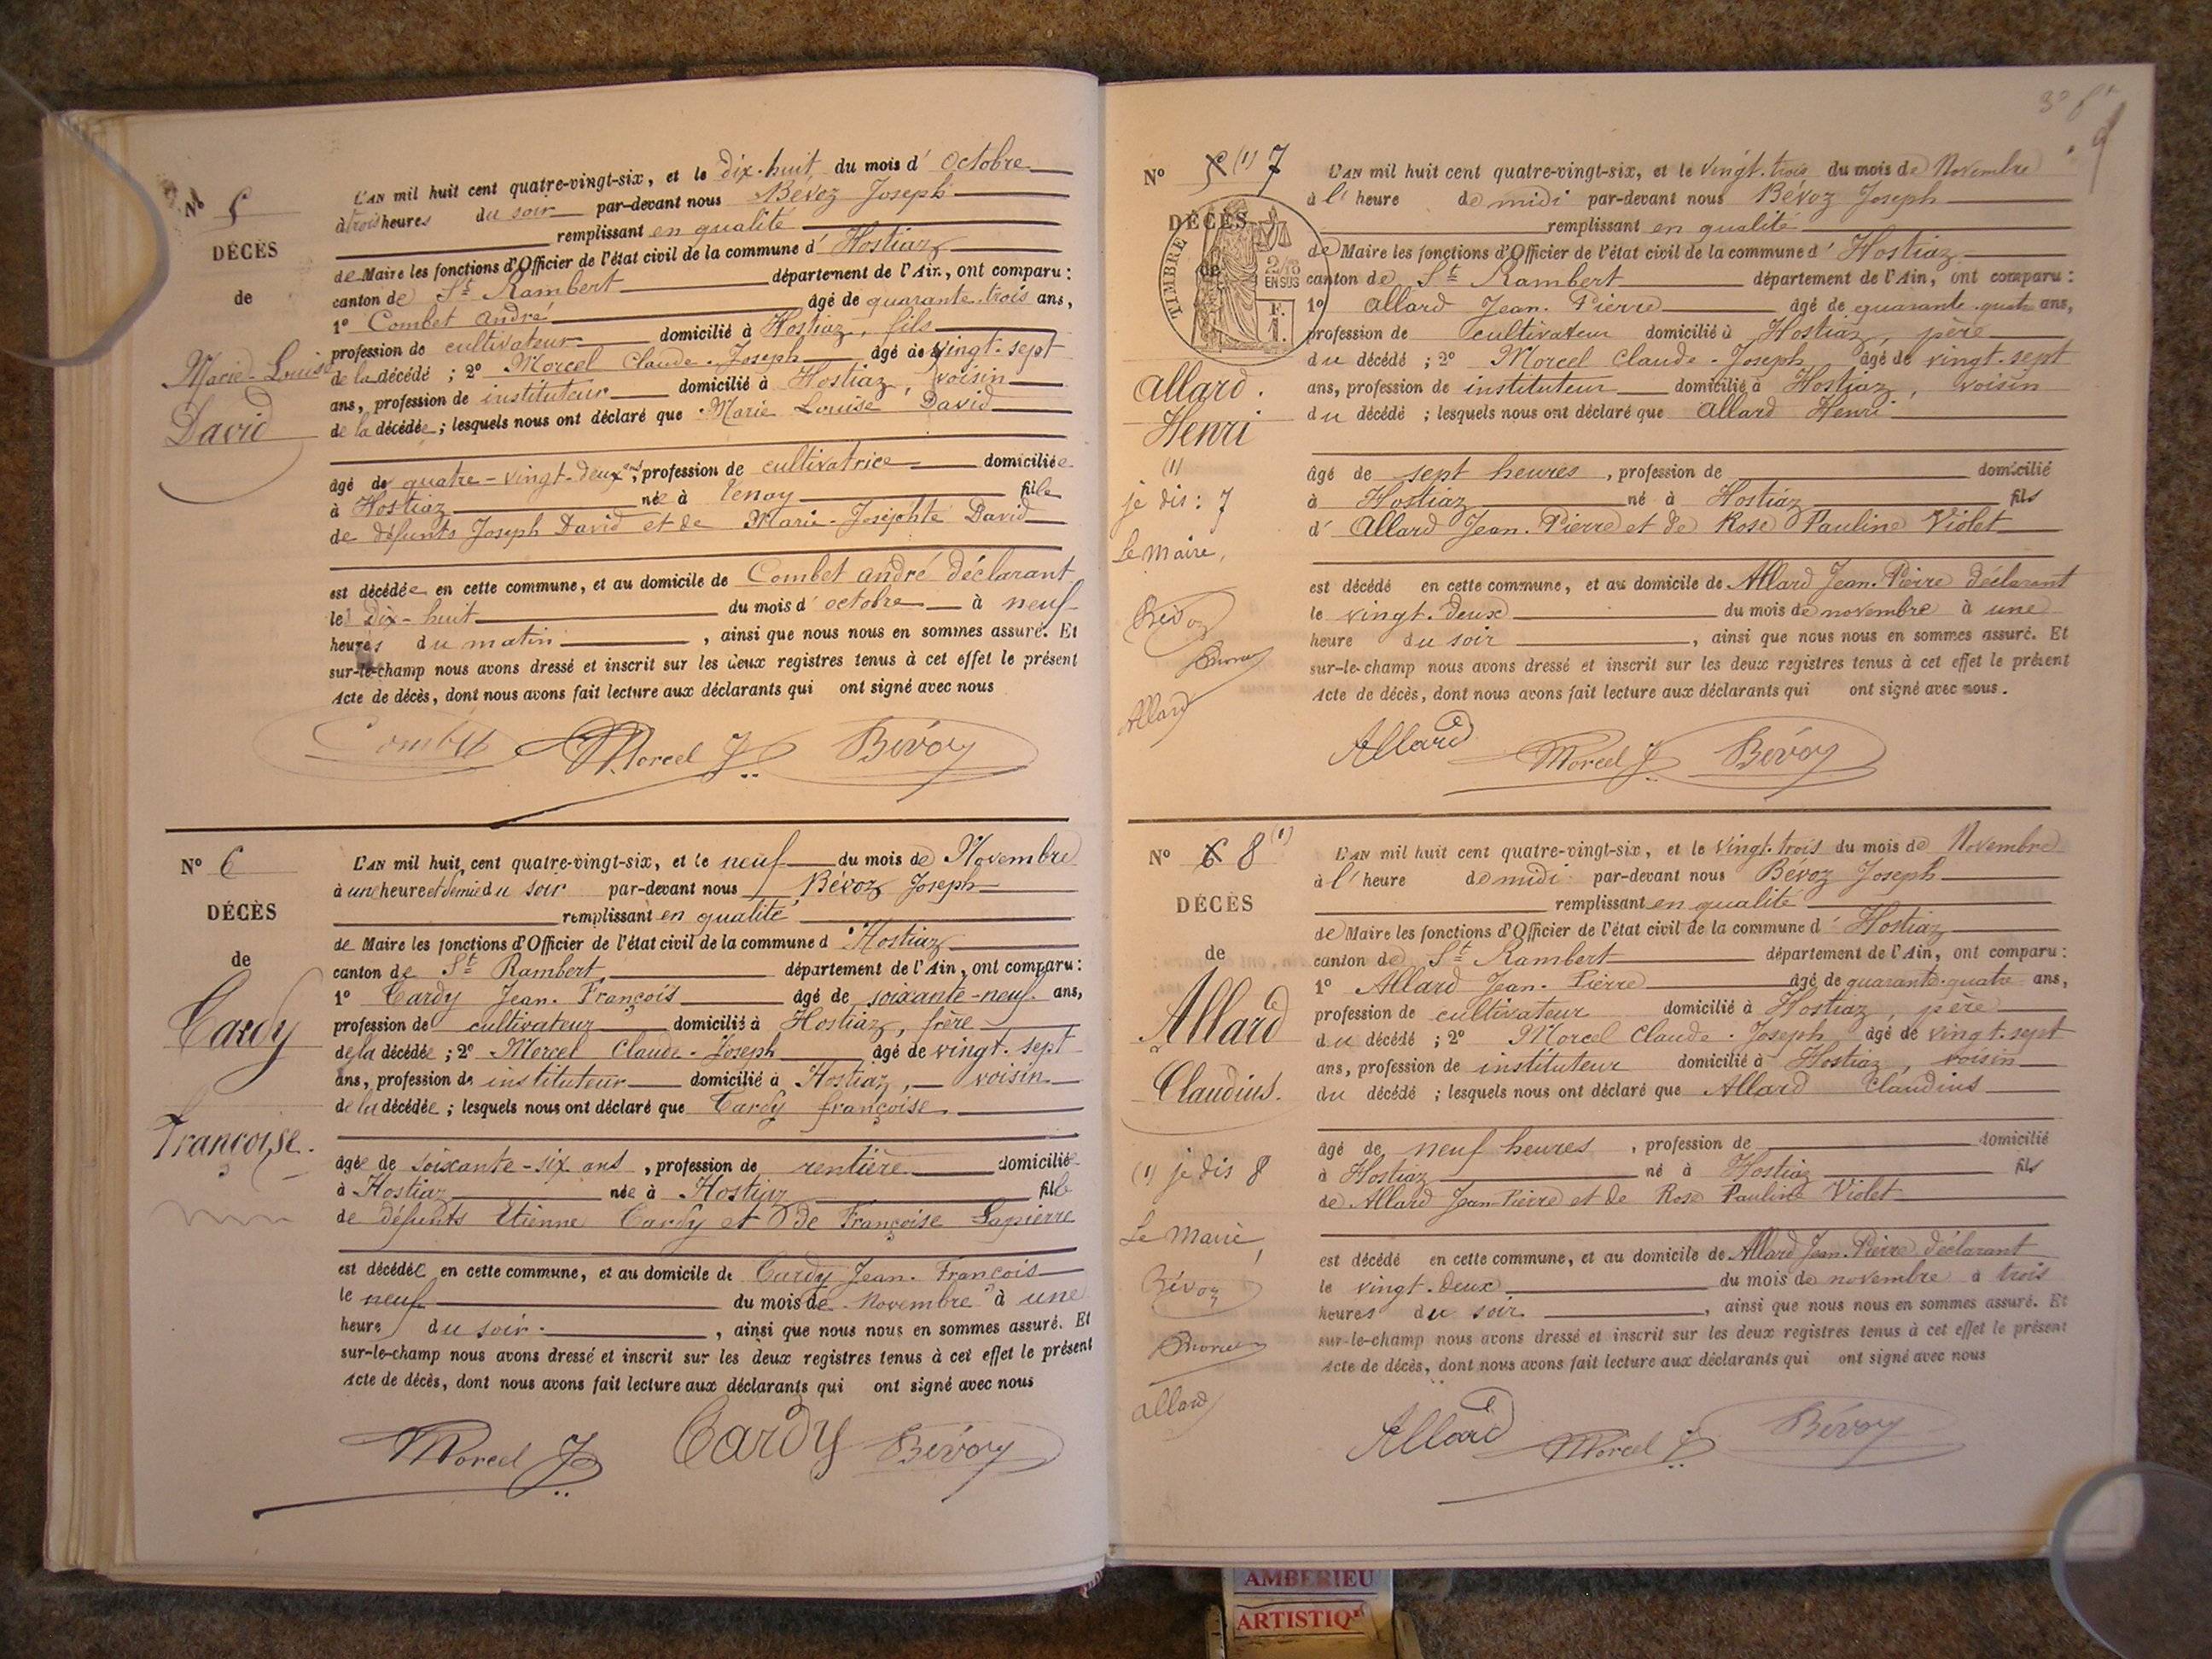 Nº 5
DÉCÈS
de
Marie-Louise
David
L'AN mil huit cent quatre-vingt-six, et le dix-huit du mois d' Octobre
à trois heures du soir par-devant nous Bévoz Joseph
remplissant en qualité
de Maire les fonctions d'Officier de l'état civil de la commune d' Hostiaz
canton de St Rambert département de l'Ain, ont comparu :
1º Combet André âgé de quarante-trois ans,
profession de cultivateur domicilié à Hostiaz, fils
de la décédé ; 2º Morcel Claude-Joseph âgé de vingt-sept
ans, profession de instituteur domicilié à Hostiaz, voisin
de la décédée ; lesquels nous ont déclaré que Marie Louise David
âgé de quatre-vingt-deux ans, profession de cultivatrice domiciliée
à Hostiaz née à Tenay fille
de défunts Joseph David et de Marie-Josephte David
est décédée en cette commune, et au domicile de Combet André déclarant
le dix-huit du mois d' octobre à neuf
heures du matin, ainsi que nous nous en sommes assuré. Et
sur-le-champ nous avons dressé et inscrit sur les deux registres tenus à cet effet le présent
Acte de décès, dont nous avons fait lecture aux déclarants qui ont signé avec nous
Combet Morcel J. Bévoz
Nº 6
DÉCÈS
de
Cardy
Françoise.
L'AN mil huit cent quatre-vingt-six, et le neuf du mois de Novembre
à une heure et demie du soir par-devant nous Bévoz Joseph
remplissant en qualité
de Maire les fonctions d'Officier de l'état civil de la commune d Hostiaz
canton de St Rambert département de l'Ain, ont comparu :
1º Cardy Jean-François âgé de soixante-neuf ans,
profession de cultivateur domicilié à Hostiaz, frère
de la décédée ; 2º Morcel Claude-Joseph âgé de vingt-sept
ans, profession de instituteur domicilié à Hostiaz, voisin
de la décédée ; lesquels nous ont déclaré que Cardy françoise.
âgée de soixante-six ans, profession de rentière domiciliée
à Hostiaz née à Hostiaz fille
de défunts Etienne Cardy et de Françoise Lapierre
est décédée en cette commune, et au domicile de Cardy Jean-François
le neuf du mois de Novembre à une
heure du soir, ainsi que nous nous en sommes assuré. Et
sur-le-champ nous avons dressé et inscrit sur les deux registres tenus à cet effet le présent
Acte de décès, dont nous avons fait lecture aux déclarants qui ont signé avec nous
Morcel J. Cardy Bévoz
Nº 5 (1) 7
DÉCÈS
de
TIMBRE
2/10
EN SUS
F.
1.
Allard.
Henri
(1)
je dis : 7
Le Maire,
Bévoz
Morcel
Allard
L'AN mil huit cent quatre-vingt-six, et le vingt-trois du mois de Novembre
à l' heure de midi par-devant nous Bévoz Joseph
remplissant en qualité
de Maire les fonctions d'Officier de l'état civil de la commune d' Hostiaz
canton de St Rambert département de l'Ain, ont comparu :
1º Allard Jean-Pierre âgé de quarante-quatre ans,
profession de cultivateur domicilié à Hostiaz, père
du décédé ; 2º Morcel Claude-Joseph âgé de vingt-sept
ans, profession de instituteur domicilié à Hostiaz, voisin
du décédé ; lesquels nous ont déclaré que Allard Henri
âgé de sept heures, profession de domicilié
à Hostiaz né à Hostiaz fils
d' Allard Jean-Pierre et de Rose Pauline Violet
est décédé en cette commune, et au domicile de Allard Jean-Pierre déclarant
le vingt-deux du mois de novembre à une
heure du soir, ainsi que nous nous en sommes assuré. Et
sur-le-champ nous avons dressé et inscrit sur les deux registres tenus à cet effet le présent
Acte de décès, dont nous avons fait lecture aux déclarants qui ont signé avec nous.
Allard Morcel J. Bévoz
Nº 6 8 (1)
DÉCÈS
de
Allard
Claudius.
(1) je dis 8
Le Maire,
Bévoz
Morcel
Allard
L'AN mil huit cent quatre-vingt-six, et le vingt-trois du mois de Novembre
à l' heure de midi par-devant nous Bévoz Joseph
remplissant en qualité
de Maire les fonctions d'Officier de l'état civil de la commune d' Hostiaz
canton de St Rambert département de l'Ain, ont comparu :
1º Allard Jean-Pierre âgé de quarante-quatre ans,
profession de cultivateur domicilié à Hostiaz, père
du décédé ; 2º Morcel Claude-Joseph âgé de vingt-sept
ans, profession de instituteur domicilié à Hostiaz, voisin
du décédé ; lesquels nous ont déclaré que Allard Claudius
âgé de neuf heures, profession de domicilié
à Hostiaz né à Hostiaz fils
de Allard Jean-Pierre et de Rose Pauline Violet
est décédé en cette commune, et au domicile de Allard Jean-Pierre déclarant
le vingt-deux du mois de novembre à trois
heures du soir, ainsi que nous nous en sommes assuré. Et
sur-le-champ nous avons dressé et inscrit sur les deux registres tenus à cet effet le présent
Acte de décès, dont nous avons fait lecture aux déclarants qui ont signé avec nous
Allard Morcel J. Bévoz
AMBERIEU
ARTISTIQ